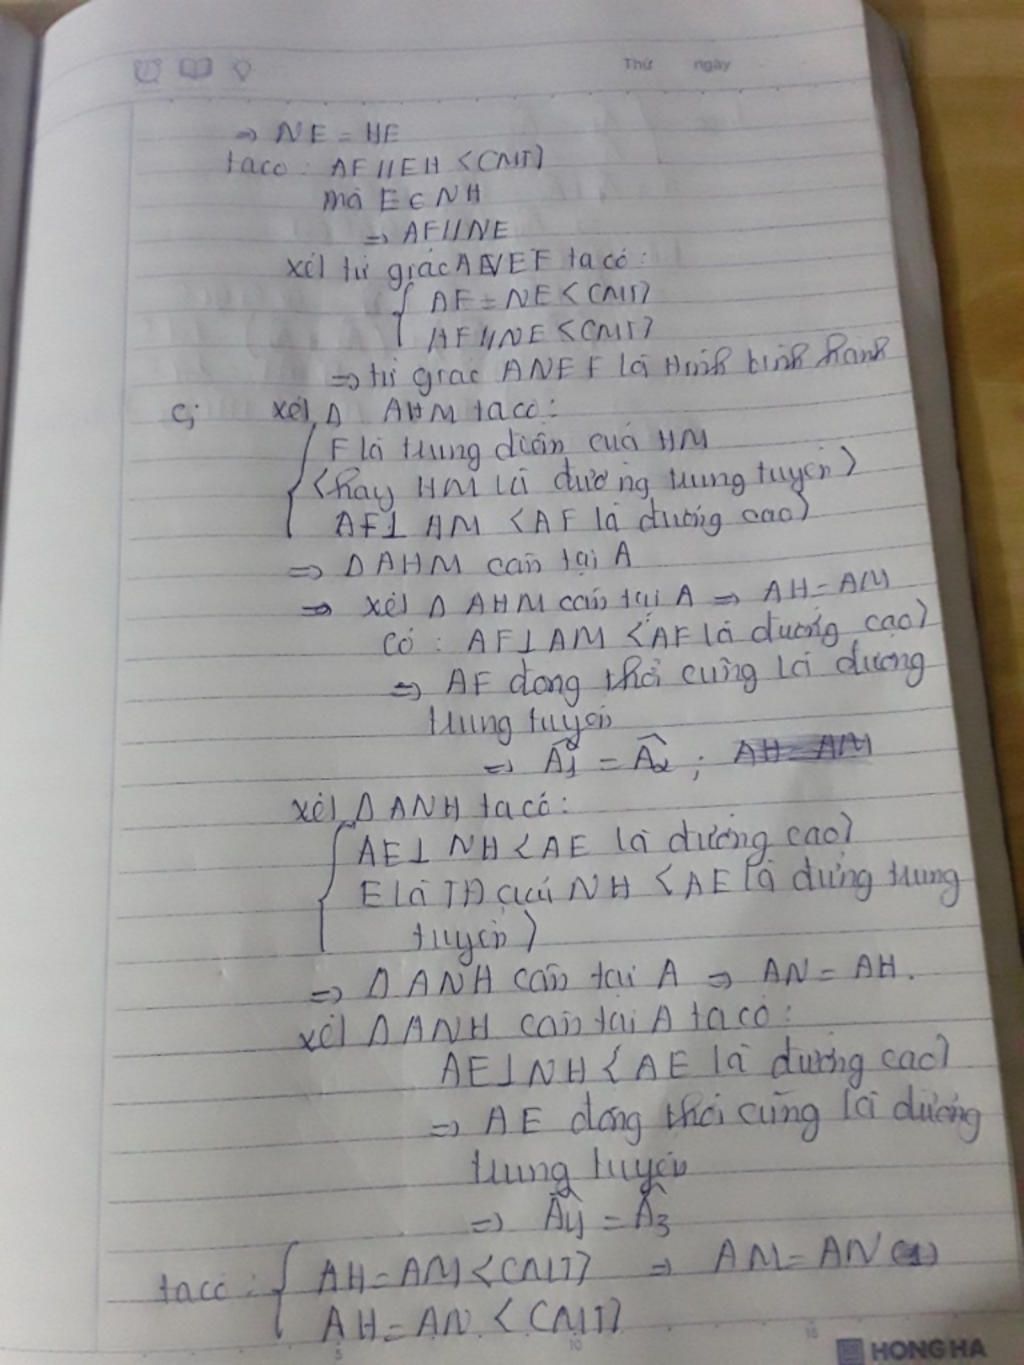 Thứ ngày
=> NE = HE
ta có : AF // EH <CMT>
mà E ∈ NH
=> AF // NE
xét tứ giác ANEF ta có :
AF = NE <CMT>
AF // NE <CMT>
=> tứ giác ANEF là Hình bình hành
c; xét Δ AHM ta có :
F là trung điểm của HM
<hay HM là đường trung tuyến>
AF ⊥ AM <AF là đường cao>
=> Δ AHM cân tại A
=> xét Δ AHM cân tại A => AH = AM
có : AF ⊥ AM <AF là đường cao>
=> AF đồng thời cũng là đường
trung tuyến
=> Â1 = Â2 ; AH = AM
xét Δ ANH ta có :
AE ⊥ NH <AE là đường cao>
E là TĐ của NH <AE là đường trung
tuyến>
=> Δ ANH cân tại A => AN = AH.
xét Δ ANH cân tại A ta có :
AE ⊥ NH <AE là đường cao>
=> AE đồng thời cũng là đường
trung tuyến
=> Â4 = Â3
ta có : AH = AM <CMT> => AM = AN (1)
AH = AN <CMT>
5 10 15
HONG HA